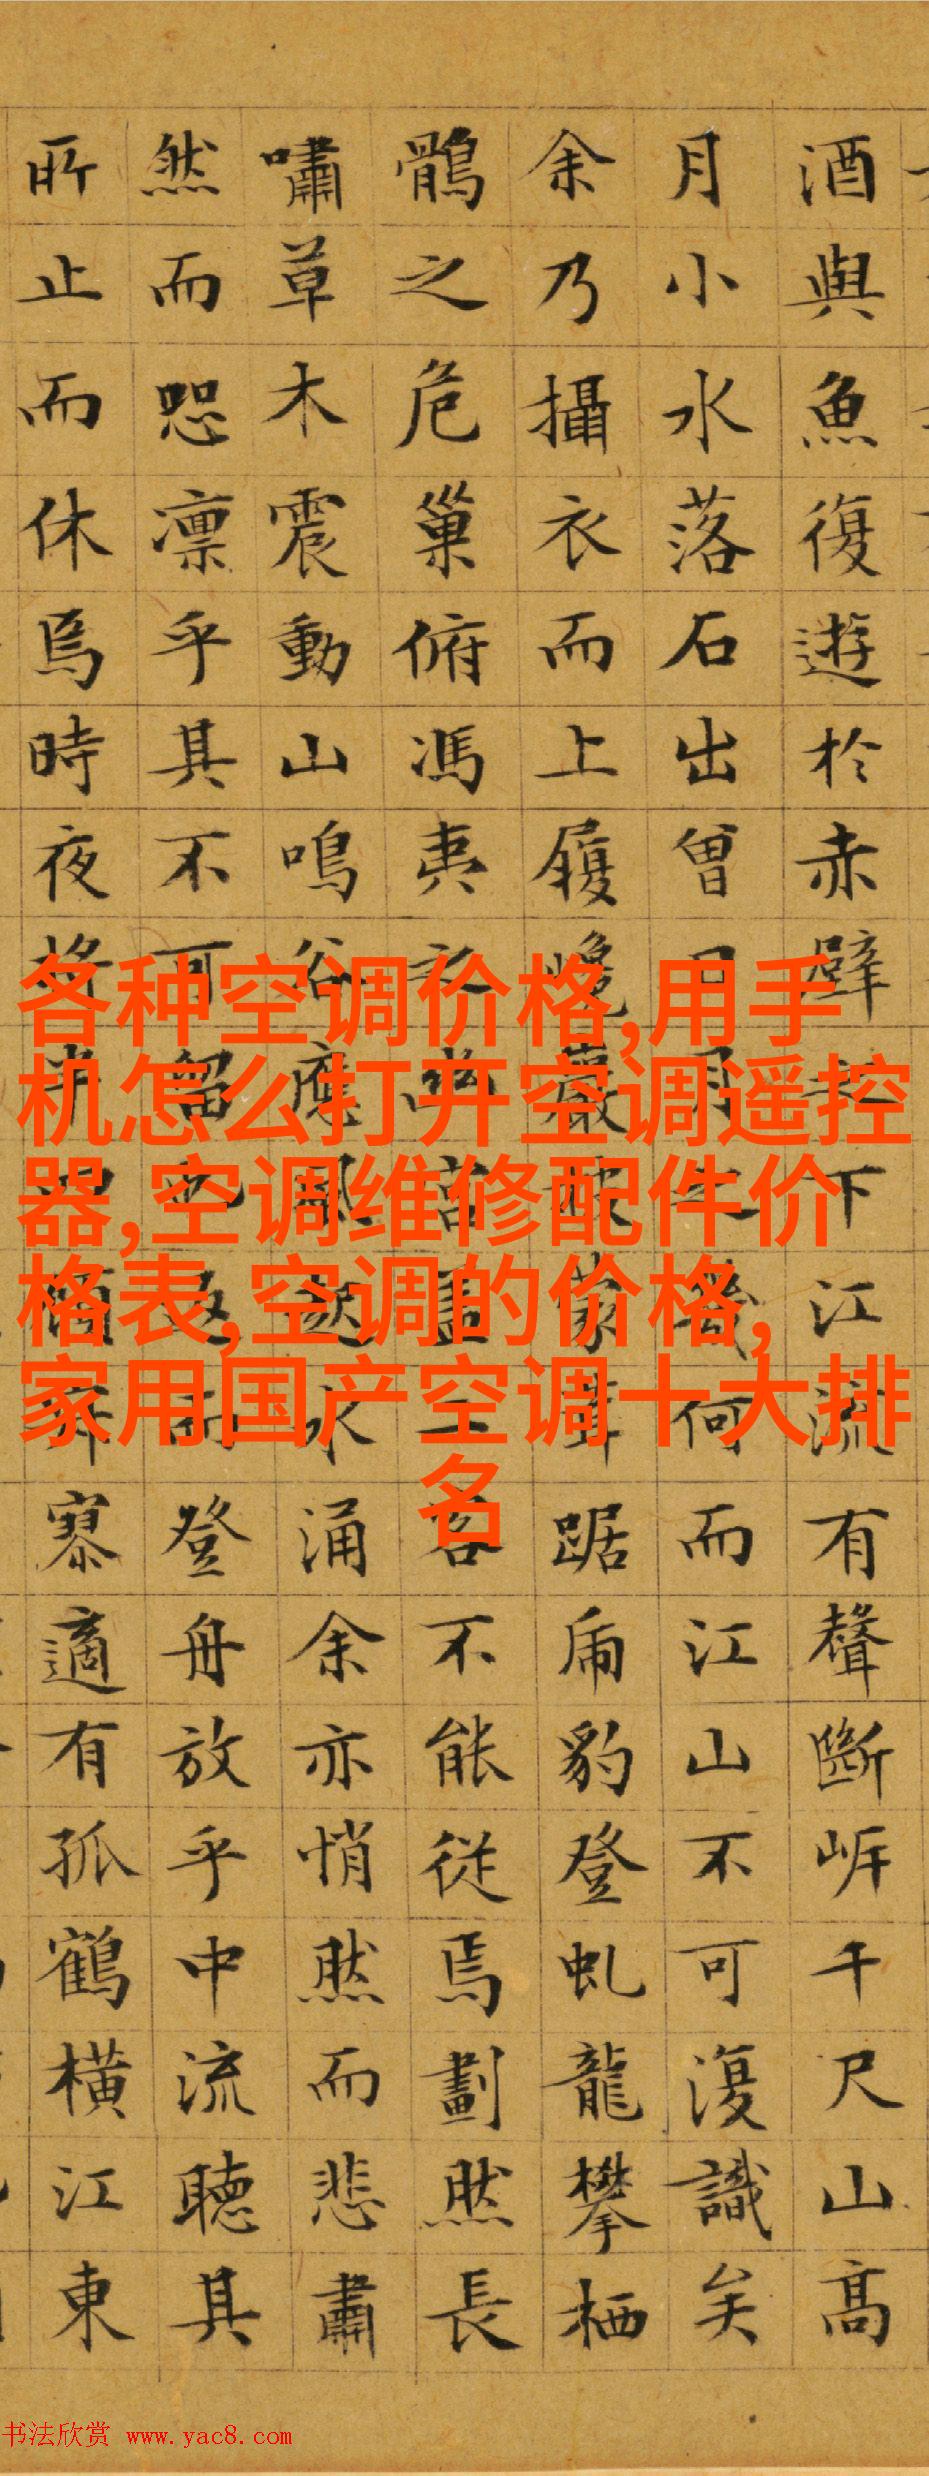 酒與魚復遊於赤壁之下江流有聲斷岸千尺山高
月小水落石出曾日月之幾何而江山不可復識矣
余乃攝衣而上履巉巖披蒙茸踞虎豹登虬龍攀栖
鶻之危巢俯馮夷之幽宮蓋二客不能從焉劃然長
嘯草木震動山鳴谷應風起水涌余亦悄然而悲肅
然而恐凛乎其不可留也返而登舟放乎中流聽其
所止而休焉時夜將半四顧寂寥適有孤鶴橫江東
各种空调价格,用手
机怎么打开空调遥控
器,空调维修配件价
格表,空调的价格,
家用国产空调十大排
名
书法欣赏 www.yac8.com